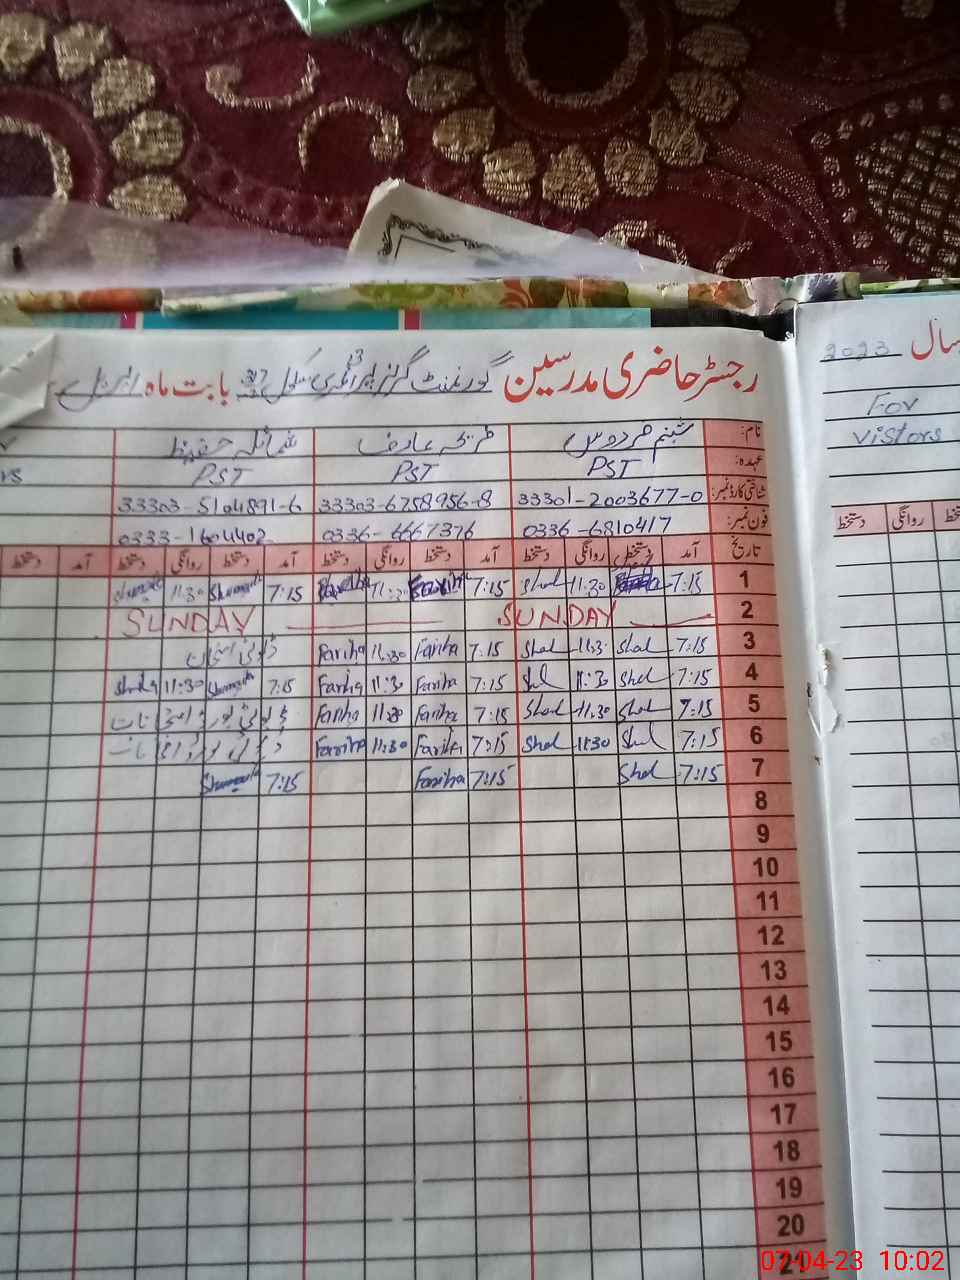 رجسٹر حاضری مدرسین گورنمنٹ گرلز پرائمری سکول بابت ماہ اپریل
سال 2023
نام: شبنم فردوس فریحہ عارف شمائلہ حفیظ
For
عہدہ: PST PST PST
vistors
شناختی کارڈ نمبر: 33301-2003677-0 33303-6758956-8 33303-5104891-6
فون نمبر: 0336-6810417 0336-6667376 0333-1604402
تاریخ آمد دستخط روانگی دستخط آمد دستخط روانگی دستخط آمد دستخط روانگی دستخط آمد دستخط
روانگی دستخط
1 7:15 11:30 Shal 7:15 Fariha 11:30 Fariha 7:15 11:30
2 SUNDAY SUNDAY
3 7:15 Shal 11:30 Shal 7:15 Fariha 11:30 Fariha
4 7:15 Shal 11:30 Shal 7:15 Fariha 11:30 Fariha 7:15 11:30
5 7:15 Shal 11:30 Shal 7:15 Fariha 11:30 Fariha ڈیوٹی بورڈ امتحانات
6 7:15 Shal 11:30 Shal 7:15 Fariha 11:30 Fariha
7 7:15 Shal 7:15 Fariha 7:15
8
9
10
11
12
13
14
15
16
17
18
19
20
21
07-04-23 10:02